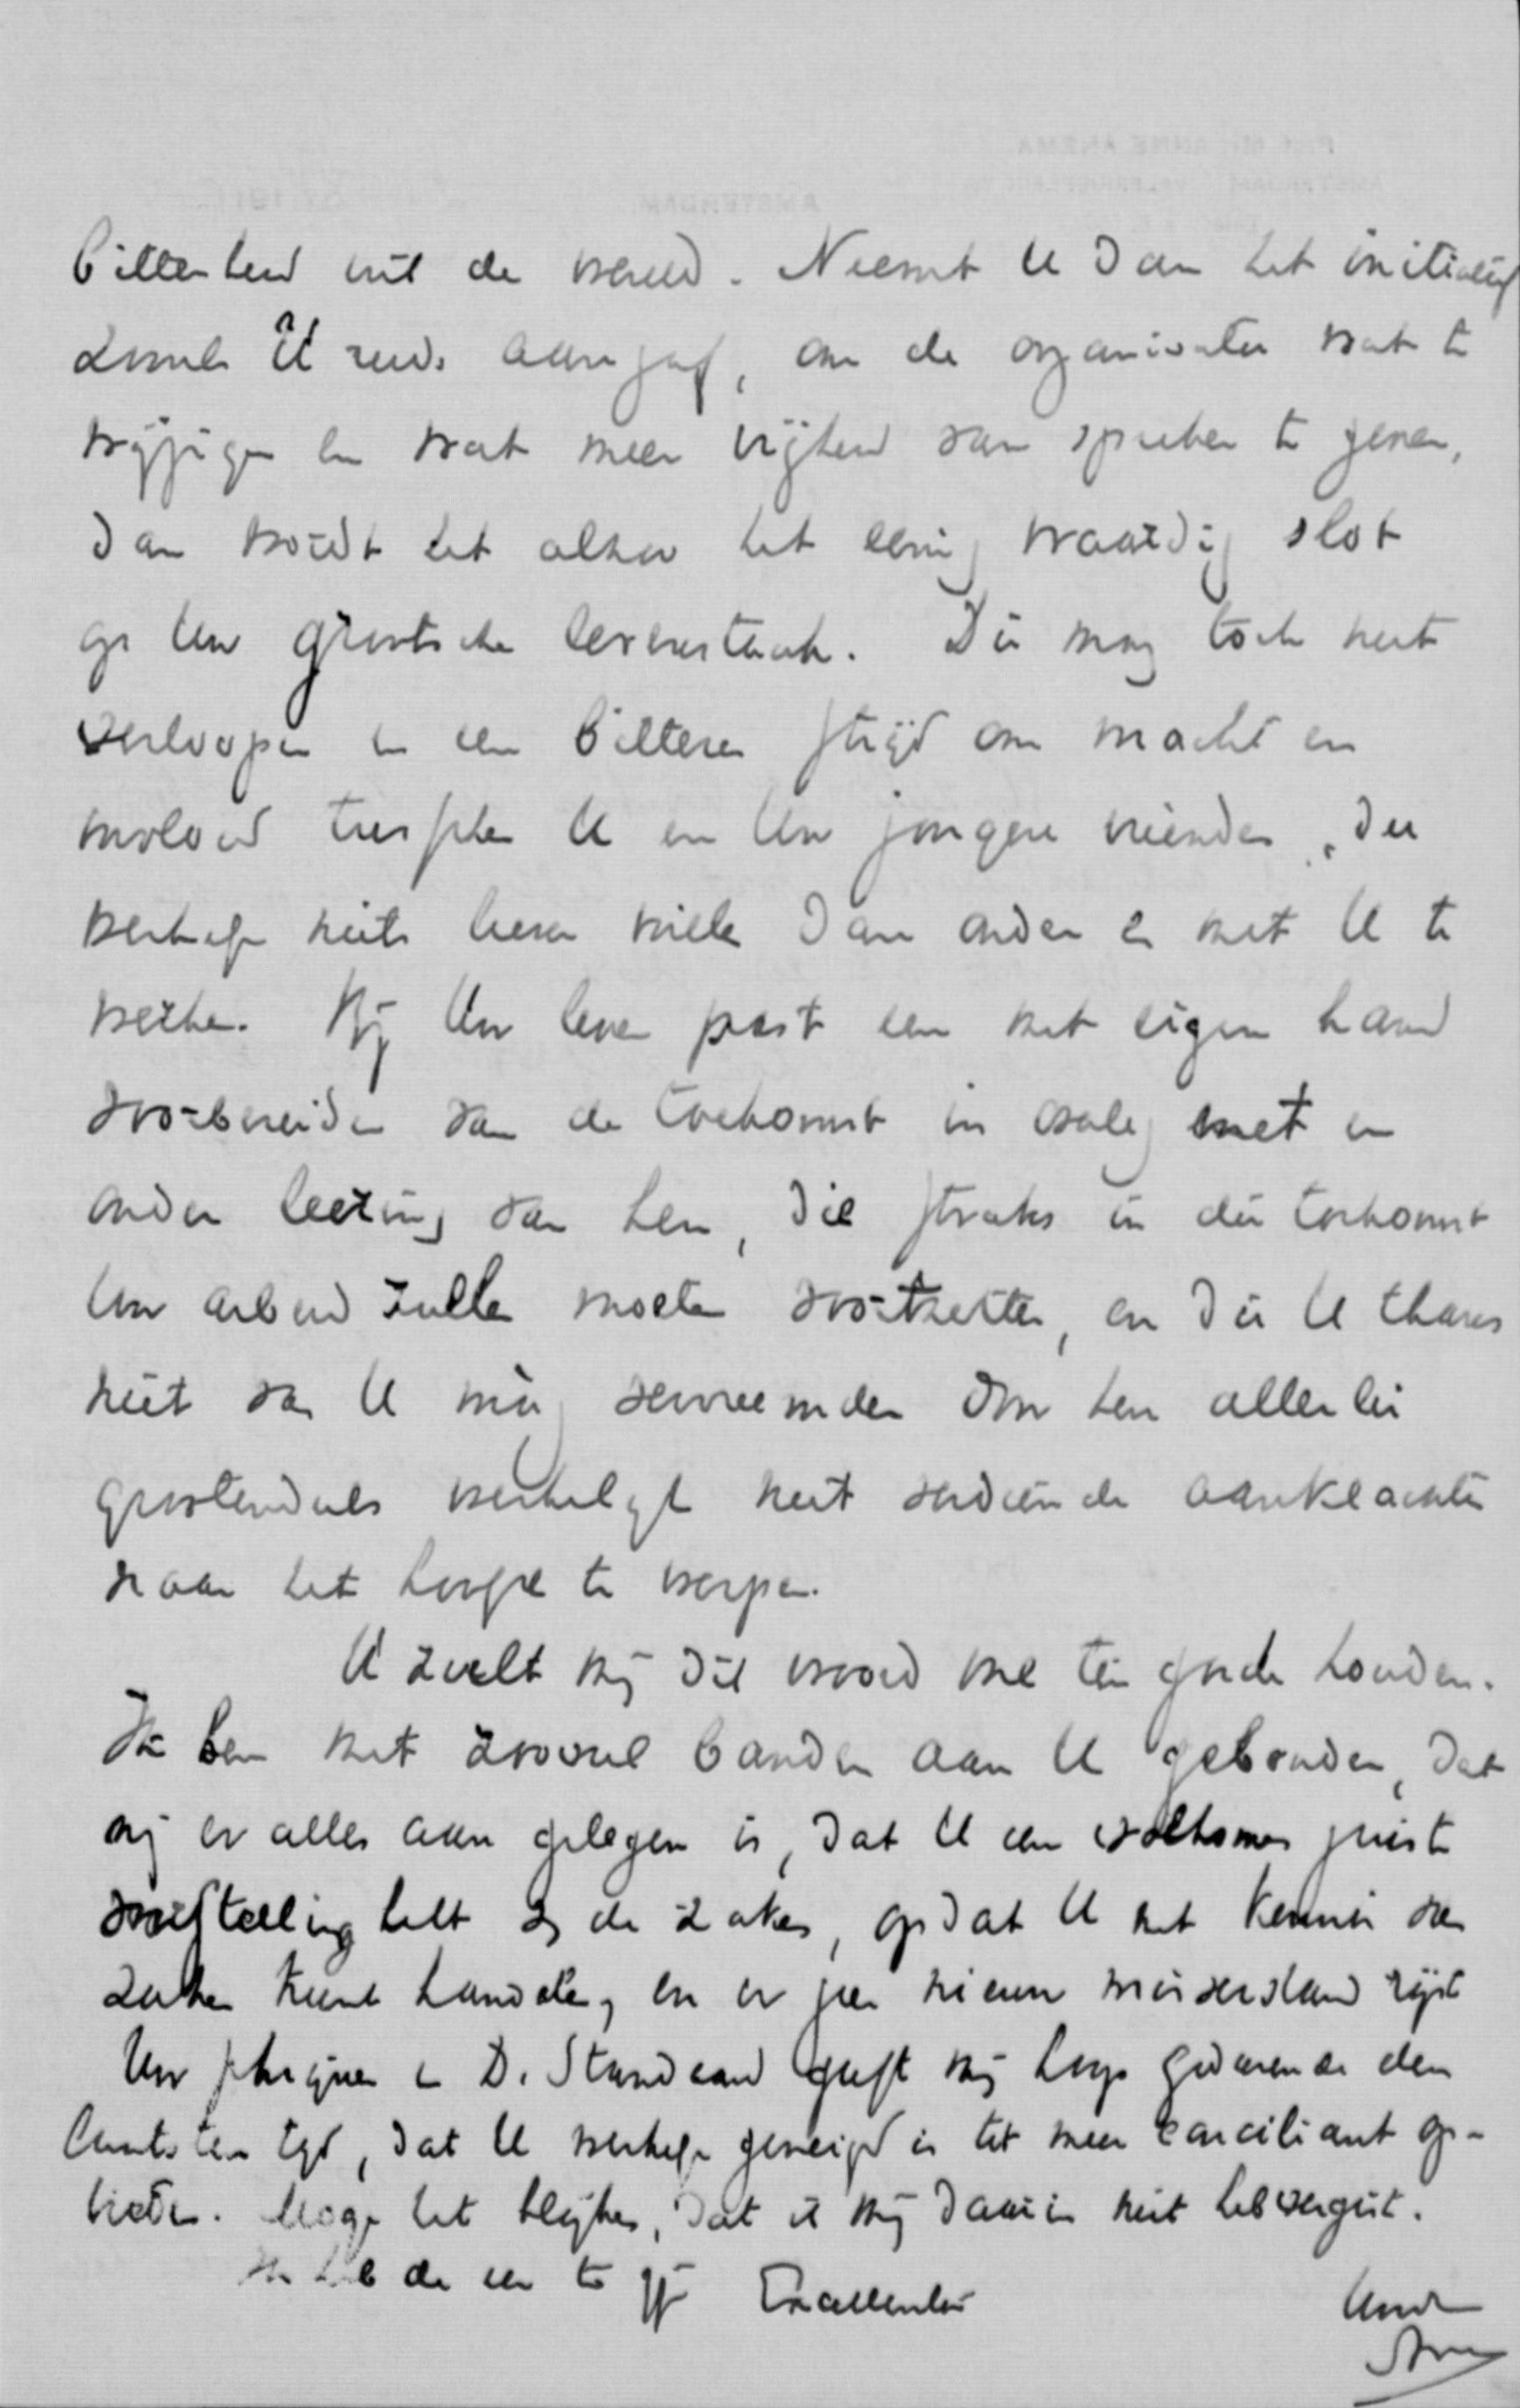 bitterheid uit de wereld. Neemt U dan het initiatief
zooals U reeds aangaf, om de organisatie wat te
wijzigen en wat meer vrijheid van spreken te geven,
dan wordt dat alsoo het eenig waardig slot
op Uw grootsche levenstaak. Die mag toch niet
verloopen in een bitteren strijd om macht en
invloed tusschen U en Uw jongere vrienden, die
werkelijk niets liever willen dan onder en met U te
werken. Bij Uw leven past een met eigen hand
voorbereiden van de toekomst in overleg met en
onder leiding van hen, die straks in die toekomst
Uw arbeid zullen moeten voortzetten, en die U thans
niet van U mag vervreemden door hen allerlei
grootendeels werkelijk niet verdiende aanklachten
naar het hoofd te werpen.
U zult mij dit woord wel ten goede houden.
Ik ben met zooveel banden aan U gebonden, dat
mij er alles aan gelegen is, dat U een volkomen juiste
voorstelling hebt van de zaken, opdat U met kennis van
zaken kunt handelen, en er geen nieuw misverstand rijst
Uw schrijven in De Standaard geeft mij hoop gedurende den
laatsten tijd, dat U werkelijk geneigd is tot meer conciliant op-
treden. Moge het blijken, dat ik mij daarin niet heb vergist.
Ik heb de eer te zijn Excellentie
Uwe